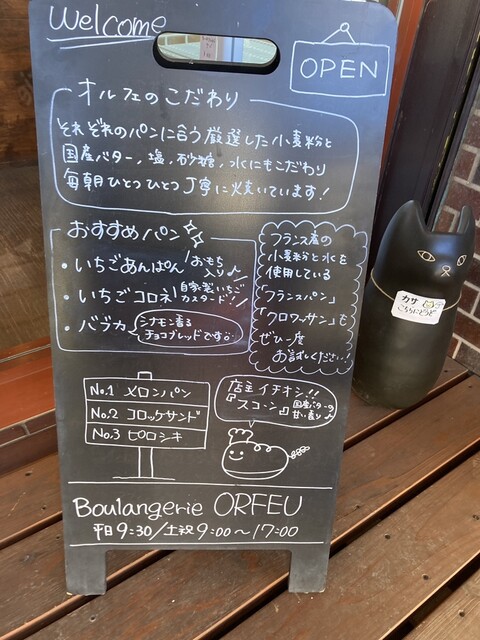 Welcome
OPEN
オルフェのこだわり
それぞれのパンに合う厳選した小麦粉と
国産バター、塩、砂糖、水にもこだわり
毎朝ひとつひとつ丁寧に焼いています!
おすすめパン
・いちごあんぱん おもち入り♪
・いちごコロネ 自家製いちごカスタード!
・バブカ シナモン香るチョコブレッドです
フランス産の
小麦粉と水を
使用している
「フランスパン」
「クロワッサン」も
ぜひ一度
お試しください!
No.1 メロンパン
No.2 コロッケサンド
No.3 ピロシキ
店主イチオシ!!
『スコーン』国産バターの甘い香り♪
Boulangerie ORFEU
平日9:30/土祝9:00〜17:00
カサ
こちらにどうぞ